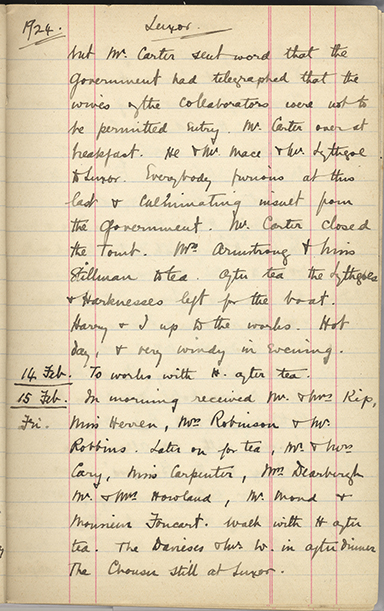 1924. Luxor.
but Mr Carter sent word that the
Government had telegraphed that the
wives of the Collaborators were not to
be permitted entry. Mr. Carter over at
breakfast. He & Mr. Mace & Mr. Lythgoe
to Luxor. Everybody furious at this
last & culminating insult from
the Government. Mr. Carter closed
the Tomb. Mrs Armstrong & Miss
Fillman to tea. After tea the Lythgoes
& Harknesses left for the boat.
Harry & I up to the works. Hot
day, & very windy in Evening.
14 Feb. To works with H. after tea.
15 Feb. In morning received Mr. & Mrs Kip,
Fri. Miss Herren, Mrs Robinson & Mr.
Robbins. Later on for tea, Mr. & Mrs
Cary, Miss Carpenter, Mrs Dearbergh
Mr. & Mrs Howland, Mr. Mond &
Monsieur Foucart. Walk with H after
tea. The Davieses & Mr W. in after dinner
The Chonsu still at Luxor.